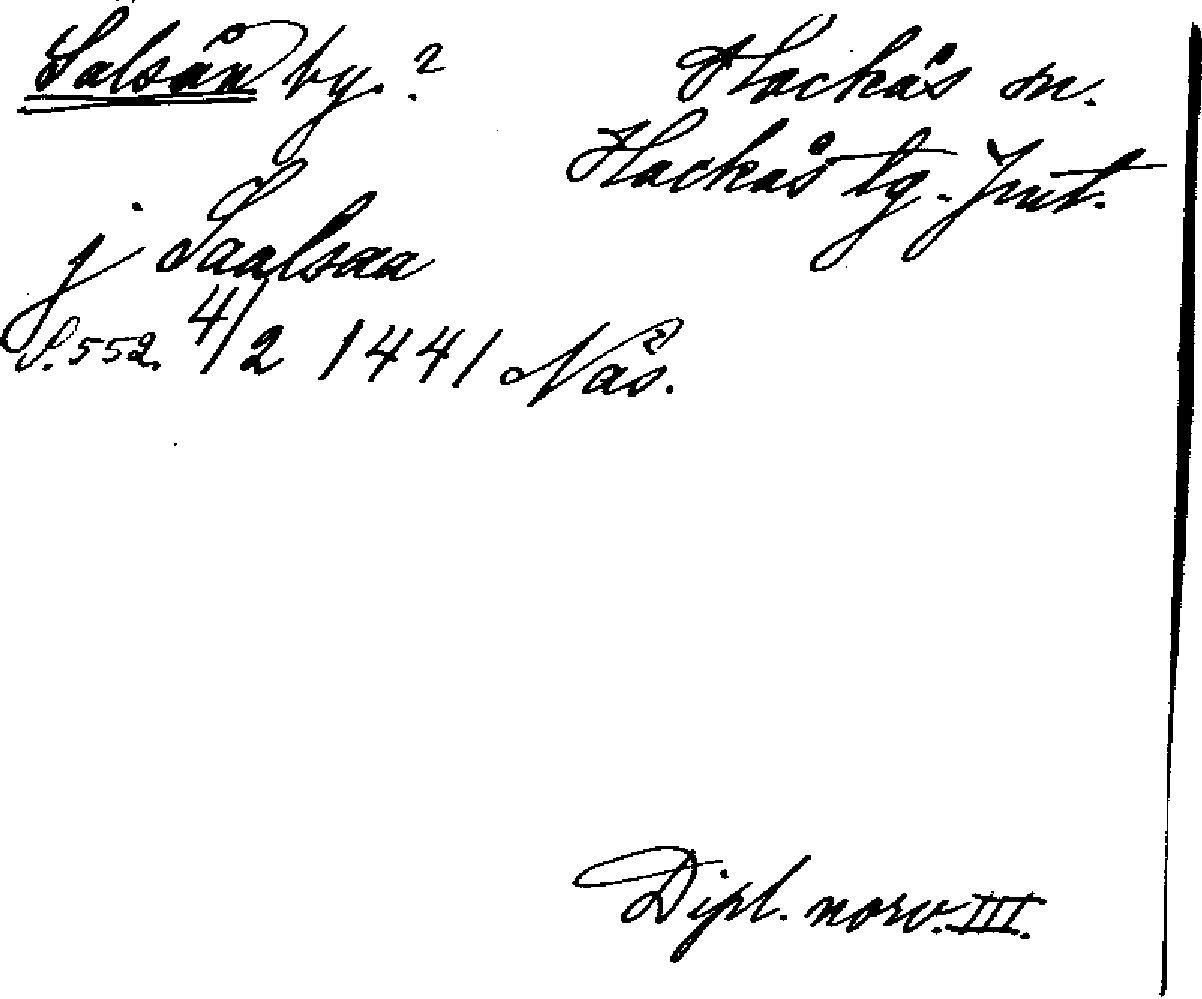 Salsån by.?
Hackås sn.
Hackås tg. Jmt.
j Saalsaa
S. 552. 4/2 1441 Näs.
Dipl. norv. III.